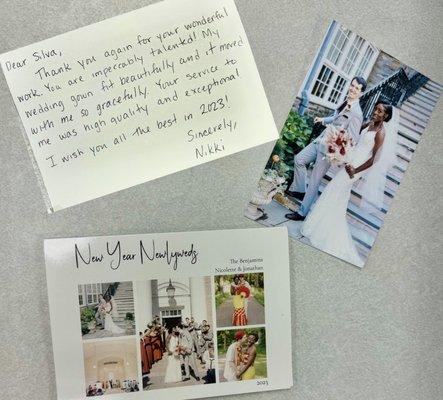 Dear Silva,
Thank you again for your wonderful
work. You are impeccably talented! My
wedding gown fit beautifully and it moved
with me so gracefully. Your service to
me was high quality and exceptional.
I wish you all the best in 2023!
Sincerely,
Nikki
New Year Newlyweds
The Benjamins
Nicolette & Jonathan
2023